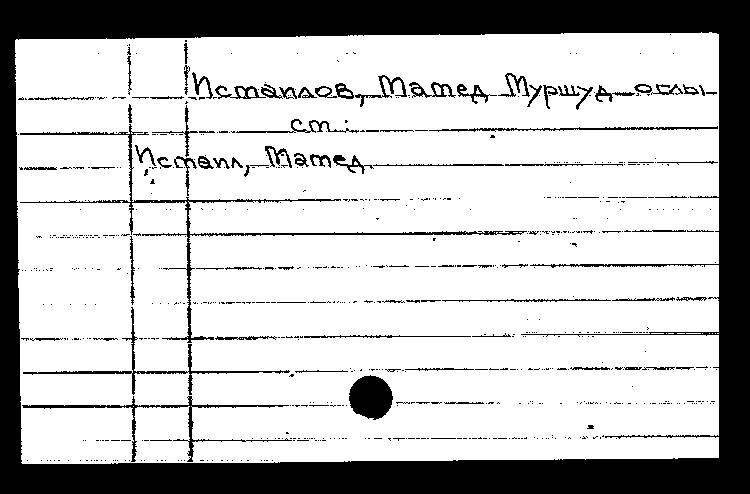 Исмаилов, Мамед Муршуд оглы
см.:
Исмаил, Мамед.